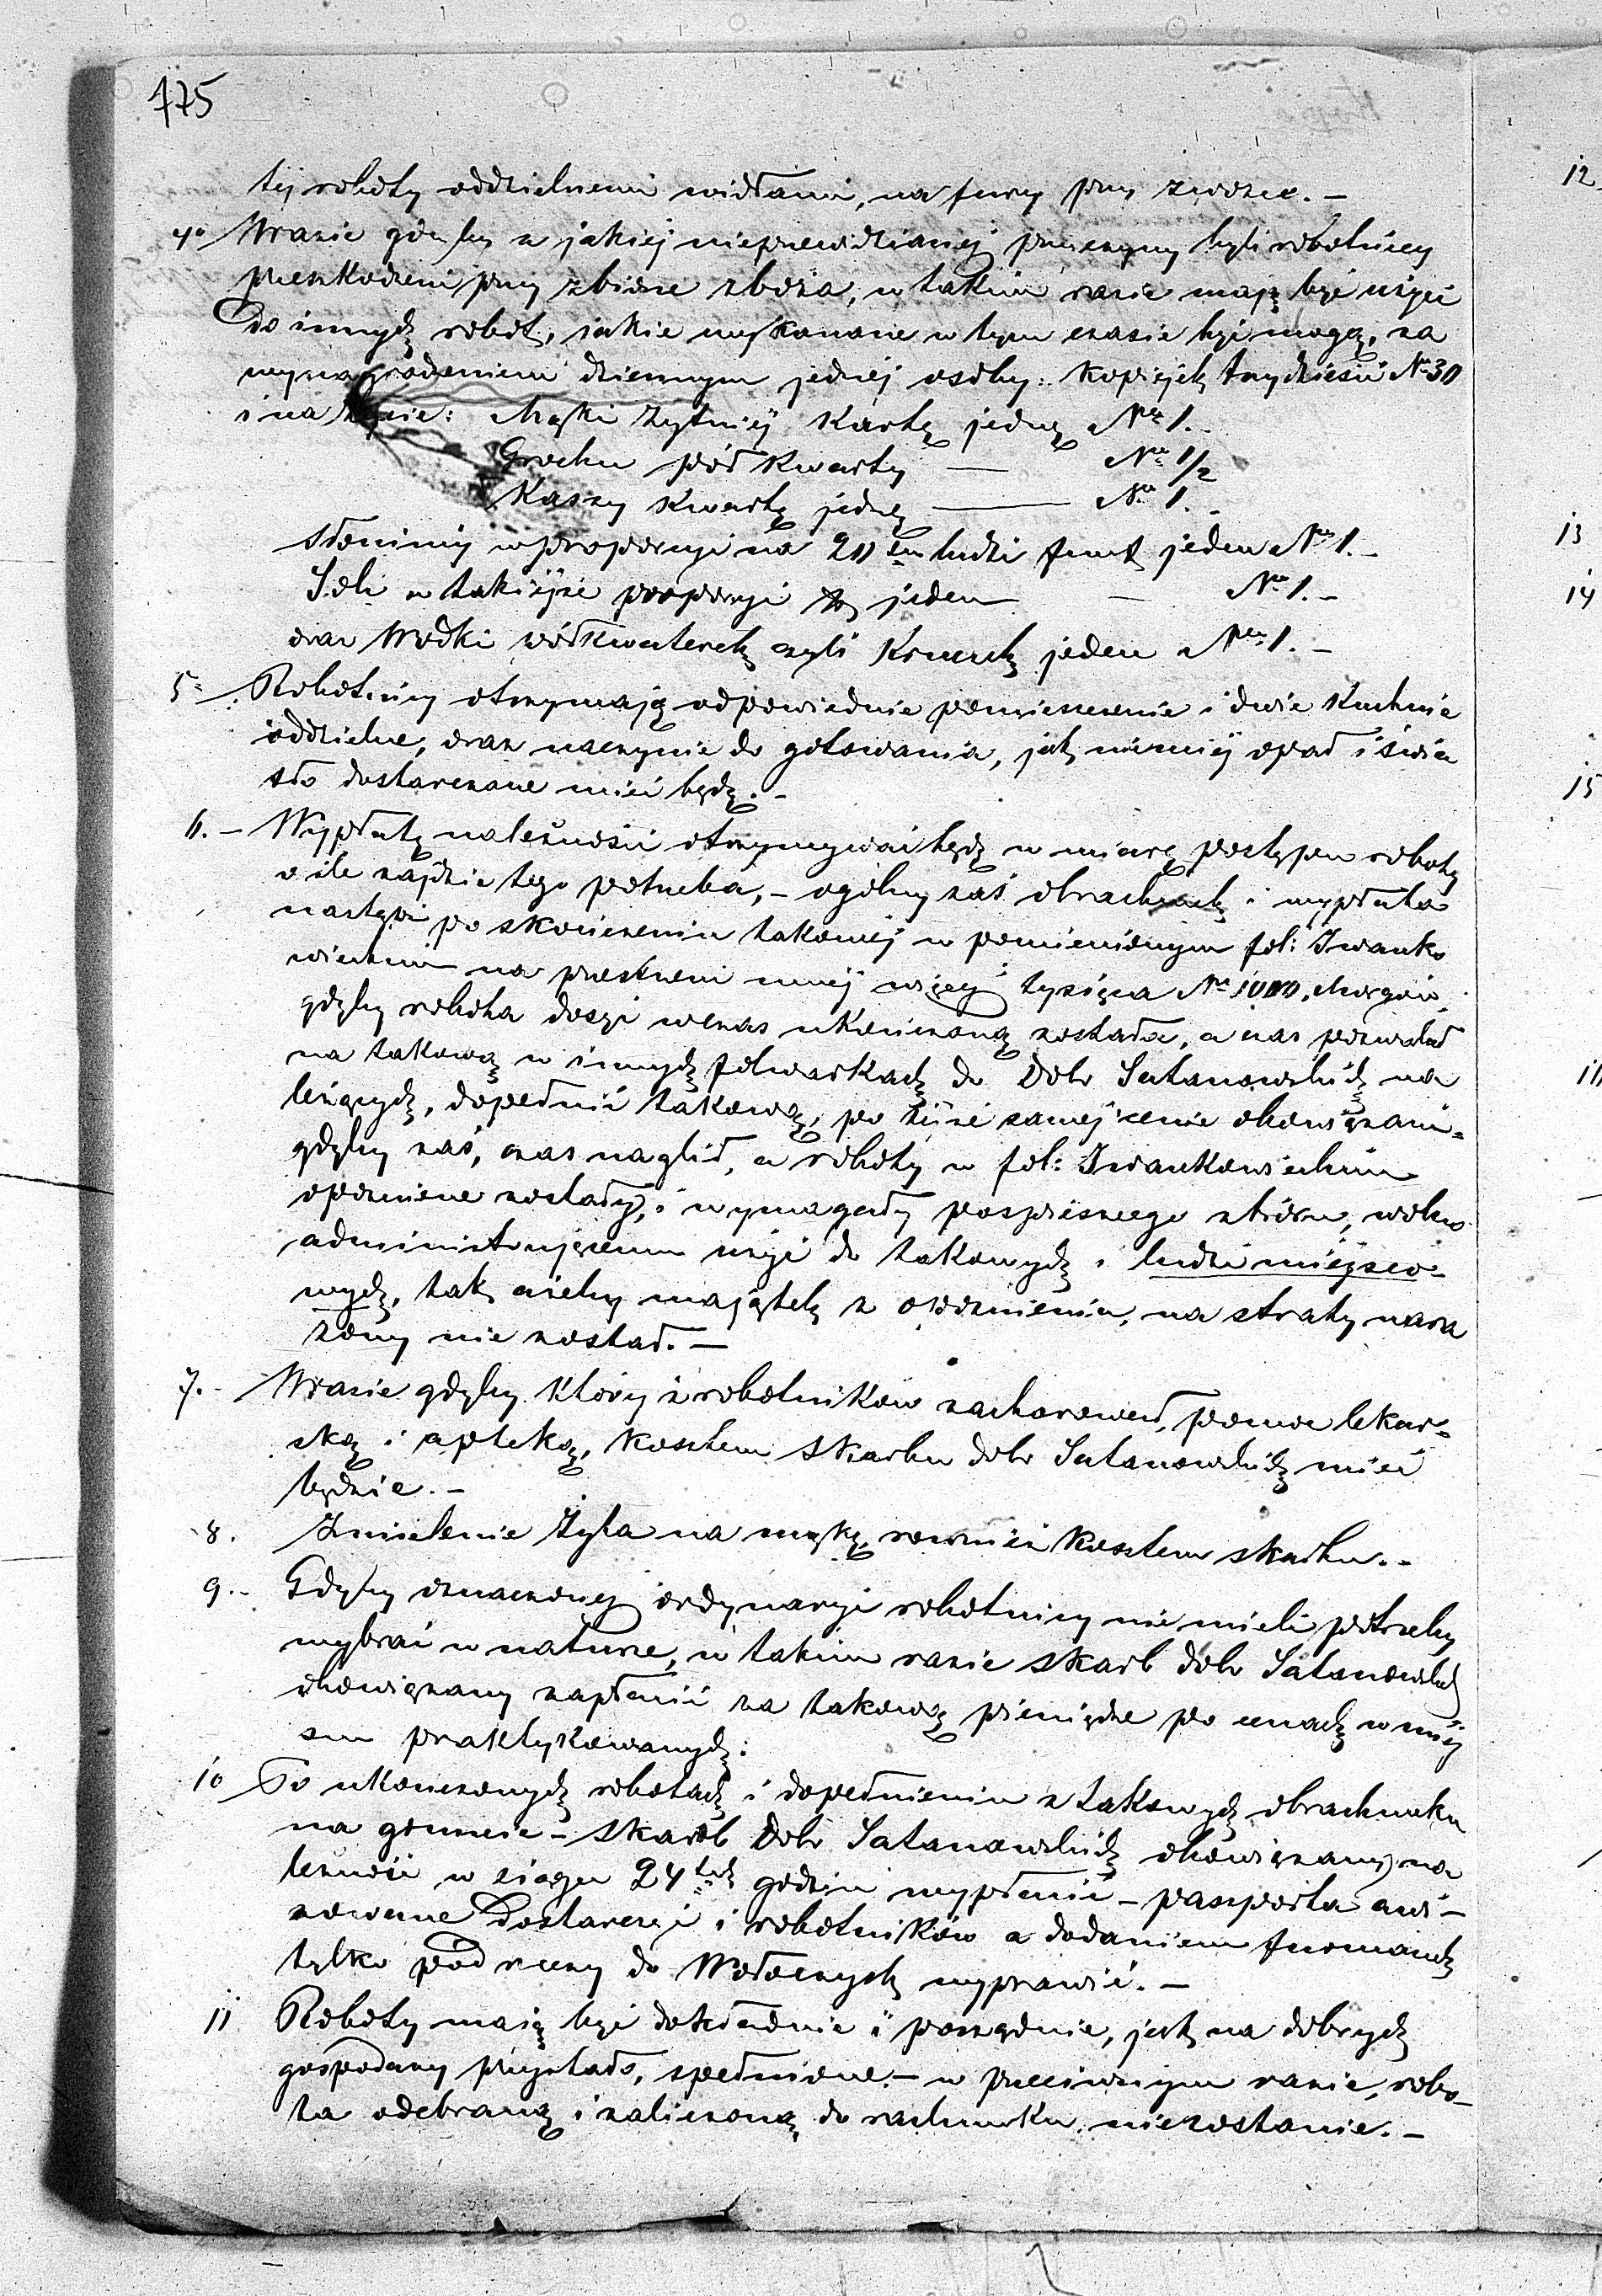 175
tej roboty oddzielnemi widłami, na fury przy zwozce. —
4o Wrazie gdyby z jakiej nieprzewidzianej przyczyny byli robotnicy
przeszkodzeni przy zbiorze zboża, w takim razie mają być użyci
do innych robot, jakie wykonane w tym czasie być mogą, za
wynagrodzeniem dziennym jednej osoby: kopiejek trzydzieści No 30
i na życie: Mąki żytniej kwartę jednę No 1.-
Grochu pół kwarty — No 1/2
Kaszy kwartę jednę — No 1.-
Słoniny w proporcyi na 20tu ludzi funt jeden No 1.-
Soli w takiejże proporcyi jeden — No 1.-
oraz Wodki półkwaterek czyli jeden No 1.-
5o Robotnicy otrzymają odpowiednie pomieszczenie i dwie kuchnie
oddzielne, oraz naczynie do gotowania, jak niemniej opał i świa
tło dostarczane mieć będą.-
6. – Wypłatę należności otrzymywać będą w miarę postępu roboty
o ile zajdzie tego potrzeba, – ogólny zaś obrachunek i wypłata
nastąpi po skończeniu takowej w pomienionym fol: Iwanko
wieckim na przestrzeni mniej więcej tysiąca No 1000, Morgów
gdyby robota dosyć wczas ukończoną została, a czas pozwalał
na takową w innych folwarkach do Dobr Satanowskich na
leżących, dopełnić takową, po tejże samej cenie obowiązani=
gdyby zaś, czas naglił, a roboty w fol: Iwankowieckim
opoznione zostały, i wymagały pospiesznego zbioru, wolno
administrującemu użyć do takowych i ludzi miejsco-
wych, tak ażeby majątek z opoznienia, na straty nara
żony nie został. —
7. - Wrazie gdyby który z robotnikow zachorował, pomoc lekar=
ską i aptekę, kosztem Skarbu dobr Satanowskich mieć
będzie. –
8. Zmielenie Żyta na mąkę, rownież kosztem skarbu. -
9. - Gdyby oznaczonej ordynaryi robotnicy nie mieli potrzeby
wybrać w naturze, w takim razie skarb dobr Satanowskich
obowiązany zapłacić za takową pieniądze po cenach w miej
scu praktykowanych:
10 Po ukończonych robotach i dopełnieniu z takowych obrachunku
na gruncie – skarb Dobr Satanowskich obowiązany na
leżność w ciągu 24ech godzin wypłacić – paszporta awi–
zowane Dostarczyć i robotników z dodaniem furmanek
tylko pod rzeczy do Wołoczysk wyprawić. —
11 Roboty mają być dokładnie i porządnie, jak na dobrych
gospodarzy przystało, spełnione. – w przeciwnym razie, robo–
ta odebraną i zaliczoną do rachunku niezostanie. –
12
13
14
15